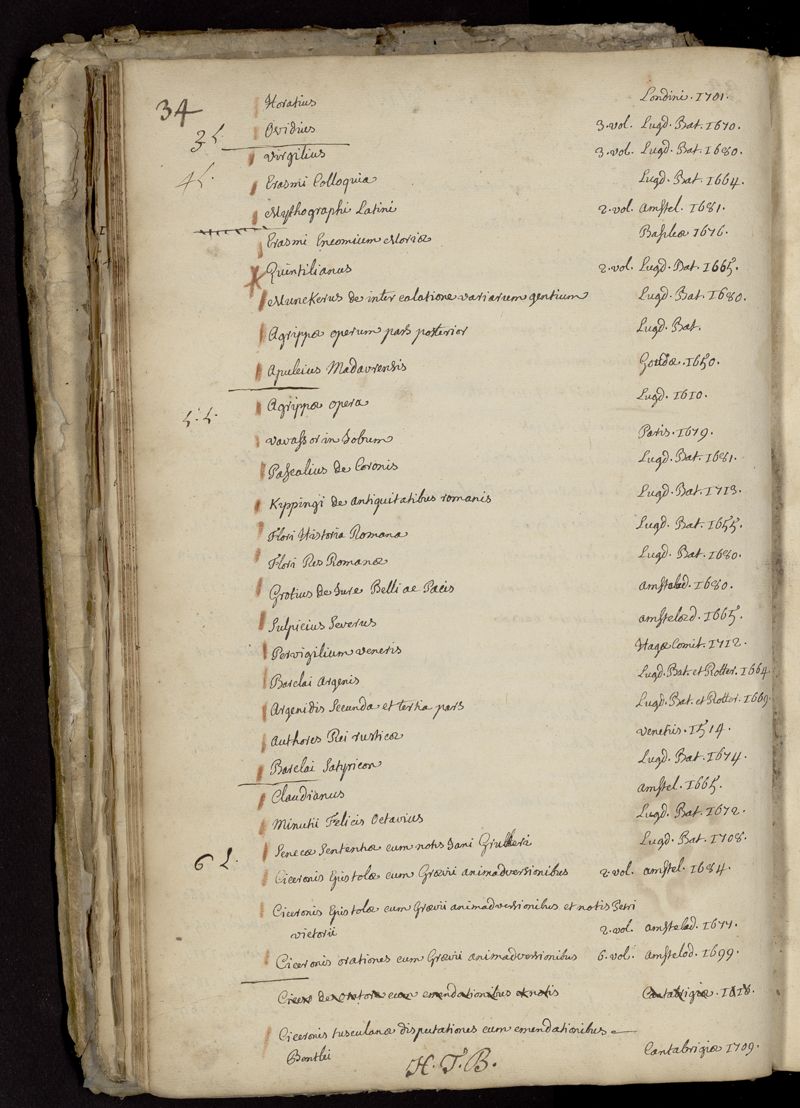 34
Horatius Londini. 1701.
3 L. Ovidius 3. vol. Lugd. Bat. 1670.
Virgilius 3. vol. Lugd. Bat. 1680.
4 L. Erasmi Colloquia Lugd. Bat. 1664.
Mythographi Latini 2. vol. Amstel. 1681.
Erasmi Encomium Moriæ Basileæ 1676.
Quintilianus 2. vol. Lugd. Bat. 1665.
Munckerus de inter calatione variarum gentium Lugd. Bat. 1680.
Agrippæ operum pars posterior Lugd. Bat.
Apuleius Madaurensis Goudæ. 1650.
5. L. Agrippæ opera Lugd. 1610.
Vavassor in Jobum Paris. 1679.
Paschalius de Coronis Lugd. Bat. 1681.
Kippingi de antiquitatibus romanis Lugd. Bat. 1713.
Flori Historia Romana Lugd. Bat. 1655.
Flori Res Romanæ Lugd. Bat. 1680.
Grotius de Jure Belli ac Pacis Amstelæd. 1680.
Sulpicius Severus Amstelæd. 1665.
Pervigilium Veneris Hagæ Comit. 1712.
Barclai Argenis Lugd. Bat. et Rotter. 1664.
Argenidis Secunda et tertia pars Lugd. Bat. et Rotter. 1669.
Authores Rei rusticæ Venetiis. 1514.
Barclai Satyricon Lugd. Bat. 1674.
Claudianus Amstel. 1665.
Minutii Felicis Octavius Lugd. Bat. 1672.
Senecæ Sententiæ cum notis Jani Gruteri Lugd. Bat. 1708.
6 L. Ciceronis Epistolæ cum Grævii animadversionibus 2. vol. Amstel. 1684.
Ciceronis Epistolæ cum Grævii animadversionibus et notis Petri
victorii 2. vol. Amstelod. 1677.
Ciceronis orationes cum Grævii animadversionibus 6. vol. Amstelod. 1699.
Cicero de oratore cum emendationibus et notis Cantabrigiæ. 1818.
Ciceronis tusculanæ disputationes cum emendationibus
Bentlei Cantabrigiæ 1709.
H. T. B.